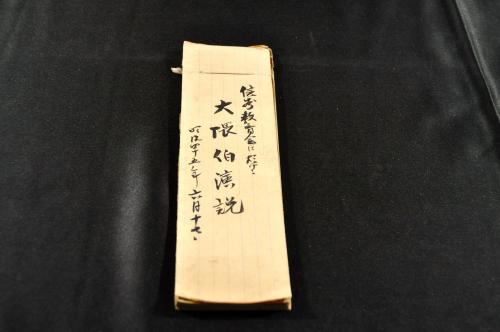 信濃教育会に於ける
大隈伯演説
明治四十五年六月十七日